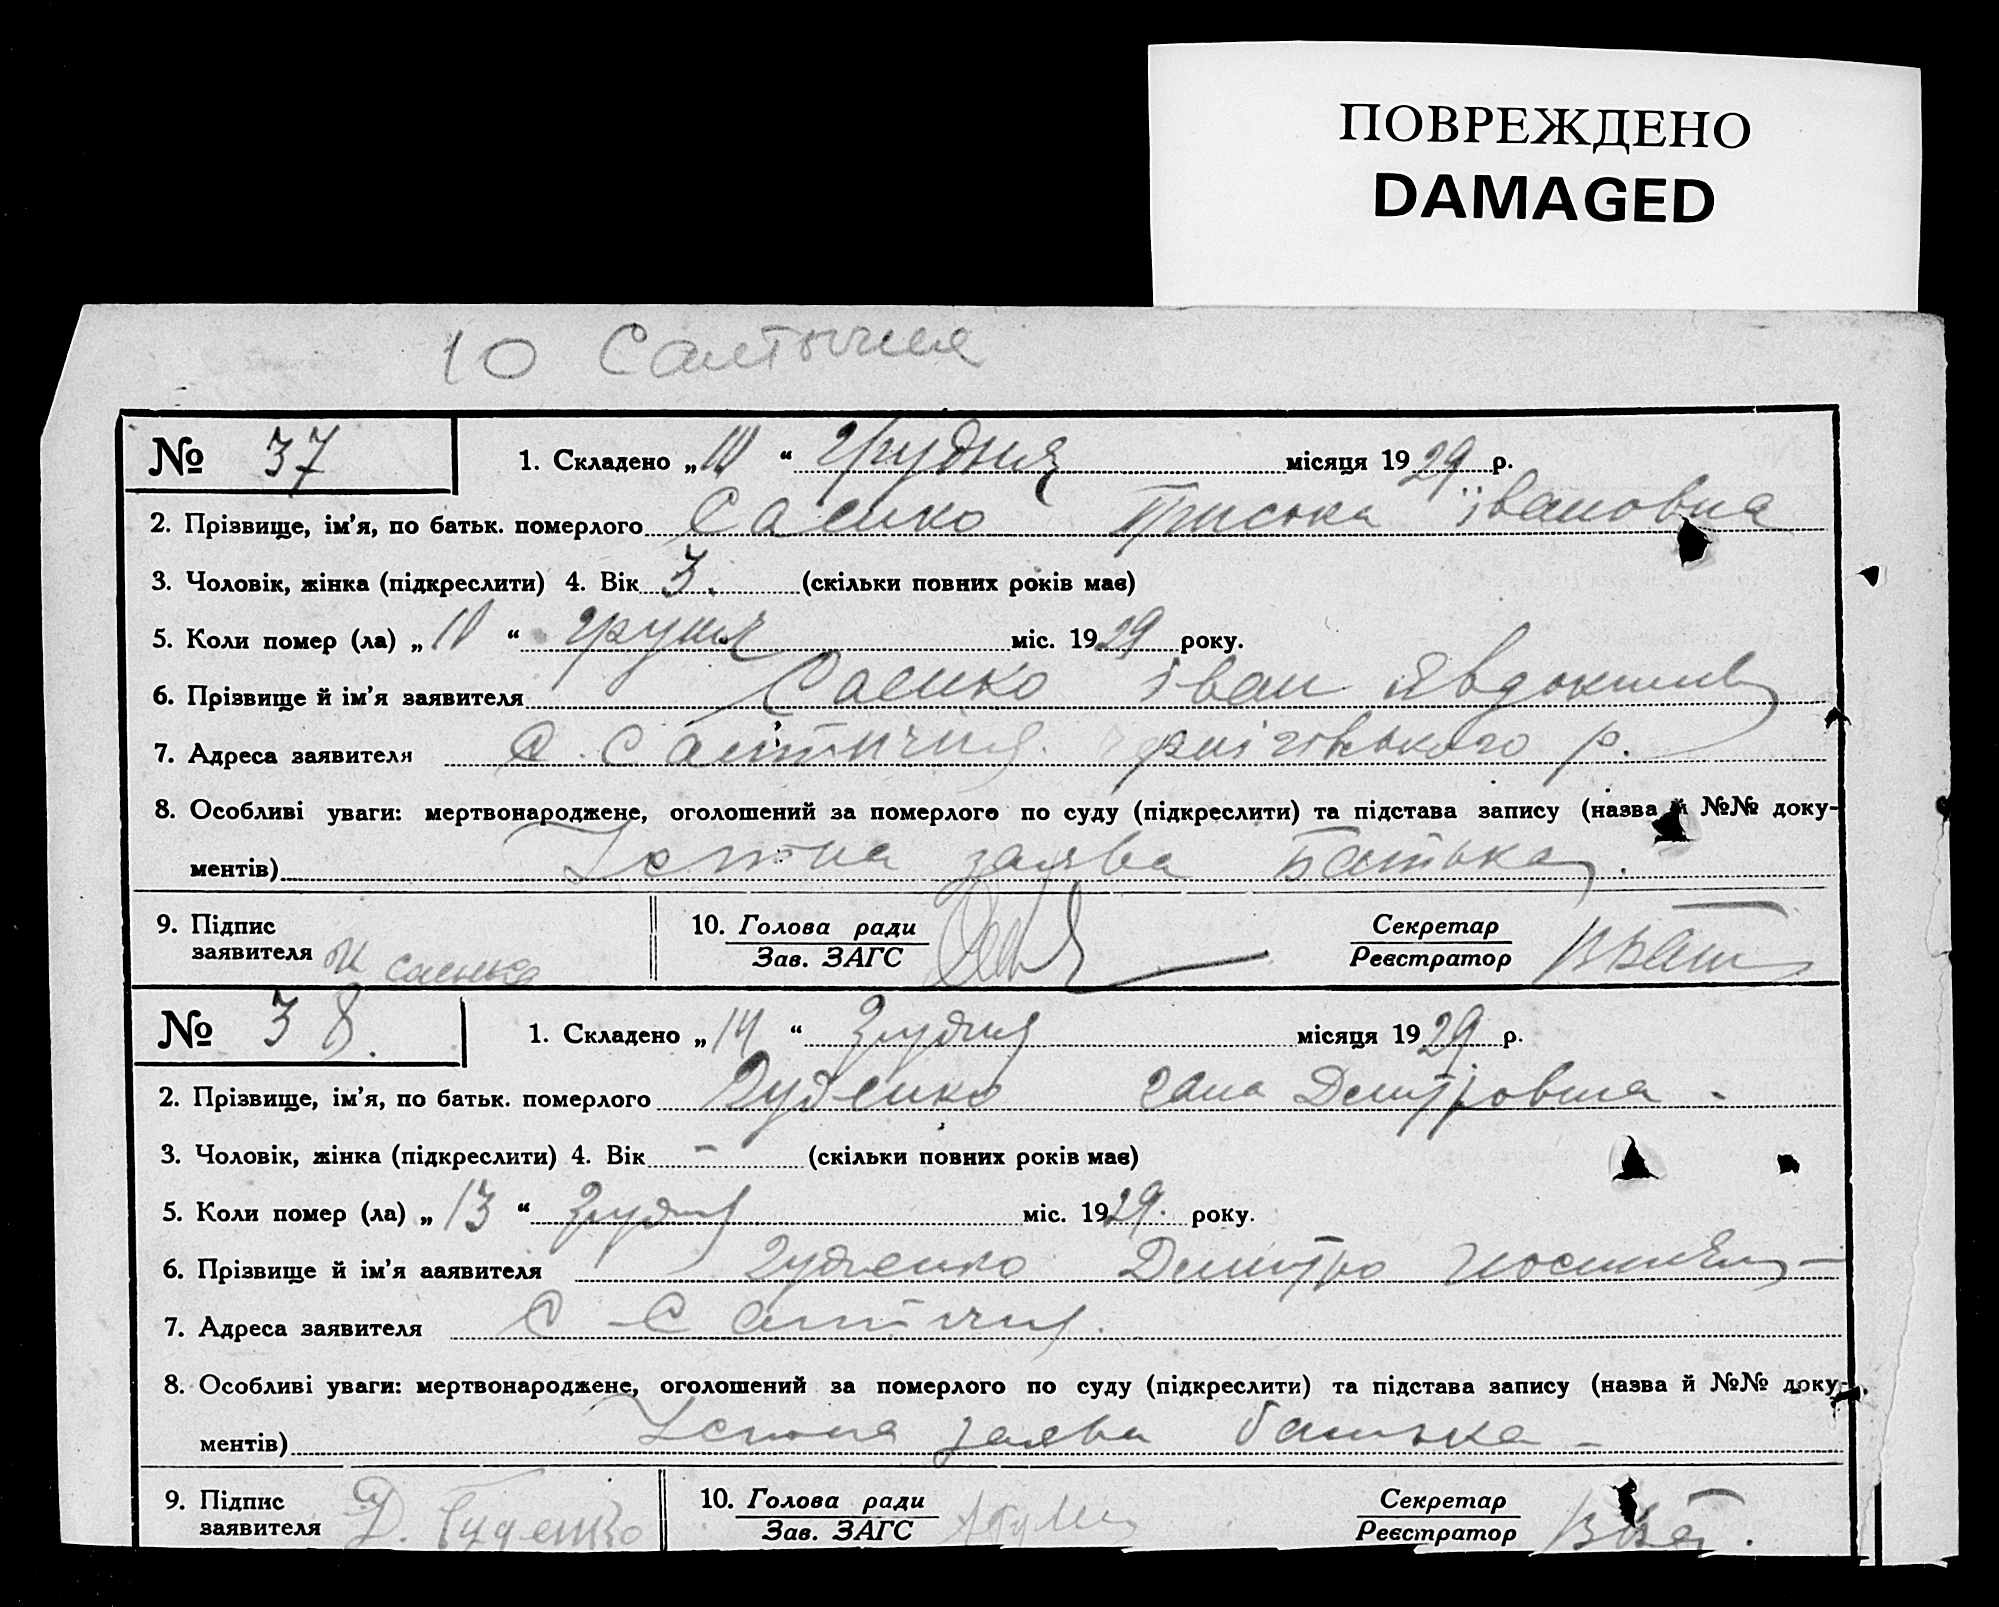 ПОВРЕЖДЕНО
DAMAGED
10 Салтычия
№ 37
1. Складено „10 “ грудня місяця 1929 р.
2. Прізвище, ім’я, по батьк. померлого Саенко Пріська івановна
3. Чоловік, жінка (підкреслити) 4. Вік 3. (скільки повних років має)
5. Коли помер (ла) „ 10 “ міс. 1929 року.
6. Прізвище й ім’я заявителя Саенко іван
7. Адреса заявителя С. Салтичия р.
8. Особливі уваги: мертвонароджене, оголошений за померлого по суду (підкреслити) та підстава запису (назва й №№ доку-
ментів) Устна заява Батька.
9. Підпис
заявителя И Саенко
10. Голова ради
Зав. ЗАГС
Секретар
Реєстратор
№ 38.
1. Складено „14 “ грудня місяця 1929 р.
2. Прізвище, ім’я, по батьк. померлого Гуденко гана Дмитровна -
3. Чоловік, жінка (підкреслити) 4. Вік - (скільки повних років має)
5. Коли помер (ла) „ 13 “ грудня міс. 1929. року.
6. Прізвище й ім’я ааявителя Гуденко Дмитро
7. Адреса заявителя С - Салтичия.
8. Особливі уваги: мертвонароджене, оголошений за померлого по суду (підкреслити) та підстава запису (назва й №№ доку-
ментів) Устна заява батька -
9. Підпис
заявителя Д. Гуденко
10. Голова ради
Зав. ЗАГС
Секретар
Реєстратор